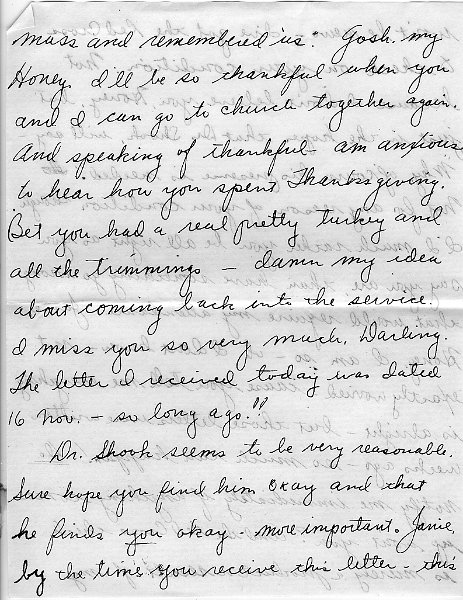 mass and remembered us". Gosh my
Honey I'll be so thankful when you
and I can go to church together again.
And speaking of thankful - am anxious
to hear how you spent Thanksgiving.
Bet you had a real pretty turkey and
all the trimmings - damn my idea
about coming back into the service.
I miss you so very much, Darling.
The letter I received today was dated
16 Nov. - so long ago.!!
Dr. Shook seems to be very reasonable.
Sure hope you find him okay and that
he finds you okay - more important. Janie,
by the time you receive this letter - this